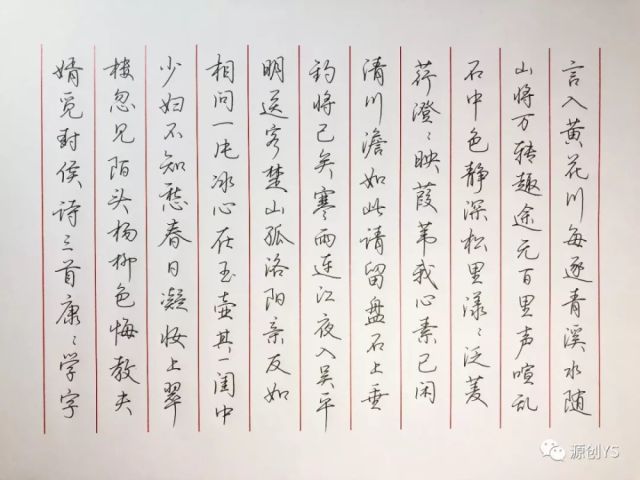 言入黄花川每逐青溪水随
山将万转趣途无百里声喧乱
石中色静深松里漾〻泛菱
荇澄〻映葭苇我心素已闲
清川澹如此请留盘石上垂
钓将已矣寒雨连江夜入吴平
明送客楚山孤洛阳亲友如
相问一片冰心在玉壶其一闺中
少妇不知愁春日凝妆上翠
楼忽见陌头杨柳色悔教夫
婿觅封侯诗三首康〻学字
源创YS